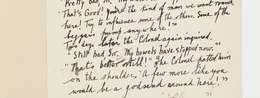 "That's Good! You're the kind of man we want round
here! Try to influence some of the others. Some of the
beggars jump anywhere!"
Two days later the Colonel again inquired.
"Still bad Sir. My bowels have stopped now."
"That's better still!" The Colonel patted him
on the shoulder, "A few more like you
would be a godsend around here!"